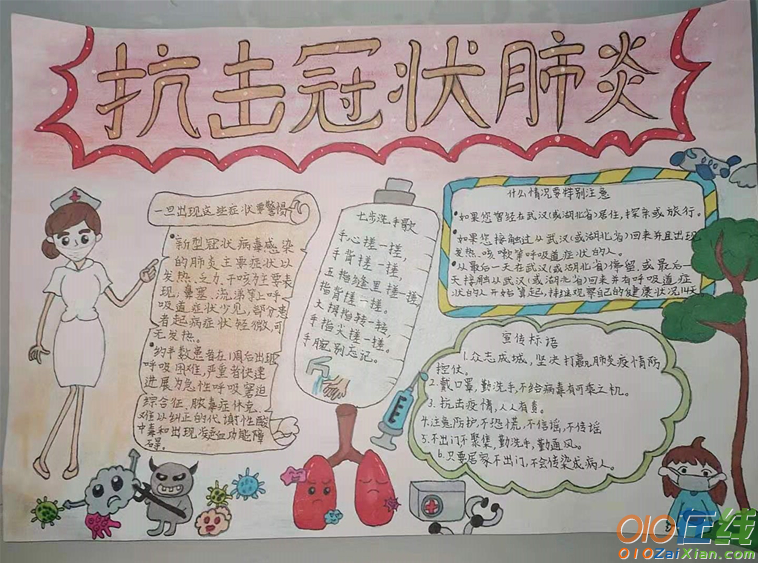 抗击冠状肺炎
一旦出现这些症状要警惕
•新型冠状病毒感染
的肺炎主要症状以
发热、乏力、干咳为主要表
现,鼻塞、流涕等上呼
吸道症状少见,部分患
者起病症状轻微,可
无发热。
•约半数患者在1周后出现
呼吸困难,严重者快速
进展为急性呼吸窘迫
综合征、脓毒症休克、
难以纠正的代谢性酸
中毒和出现凝血功能障
七步洗手歌
手心搓一搓,
手背搓一搓。
五指缝里搓一搓,
指背搓一搓。
大拇指转一转,
手指尖搓一搓。
手腕别忘记。
什么情况要特别注意
•如果您曾经去武汉(或湖北省)居住,探亲或旅行。
•如果您接触过从武汉(或湖北省)回来并且出现
发热、咳嗽等呼吸道症状的人。
•从最后一天在武汉(或湖北省)停留或最后一
天接触从武汉(或湖北省)回来并有呼吸道症
状的人开始算起,持续观察自己的健康状况14天
宣传标语
1.众志成城,坚决打赢肺炎疫情防
控仗。
2.戴口罩,勤洗手,不给病毒有可乘之机。
3.抗击疫情,人人有责。
4.注意防护,不恐慌,不信谣,不传谣
5.不出门不聚集,勤洗手,勤通风。
6.只要居家不出门,不会传染成病人。
010在线
010ZaiXian.com